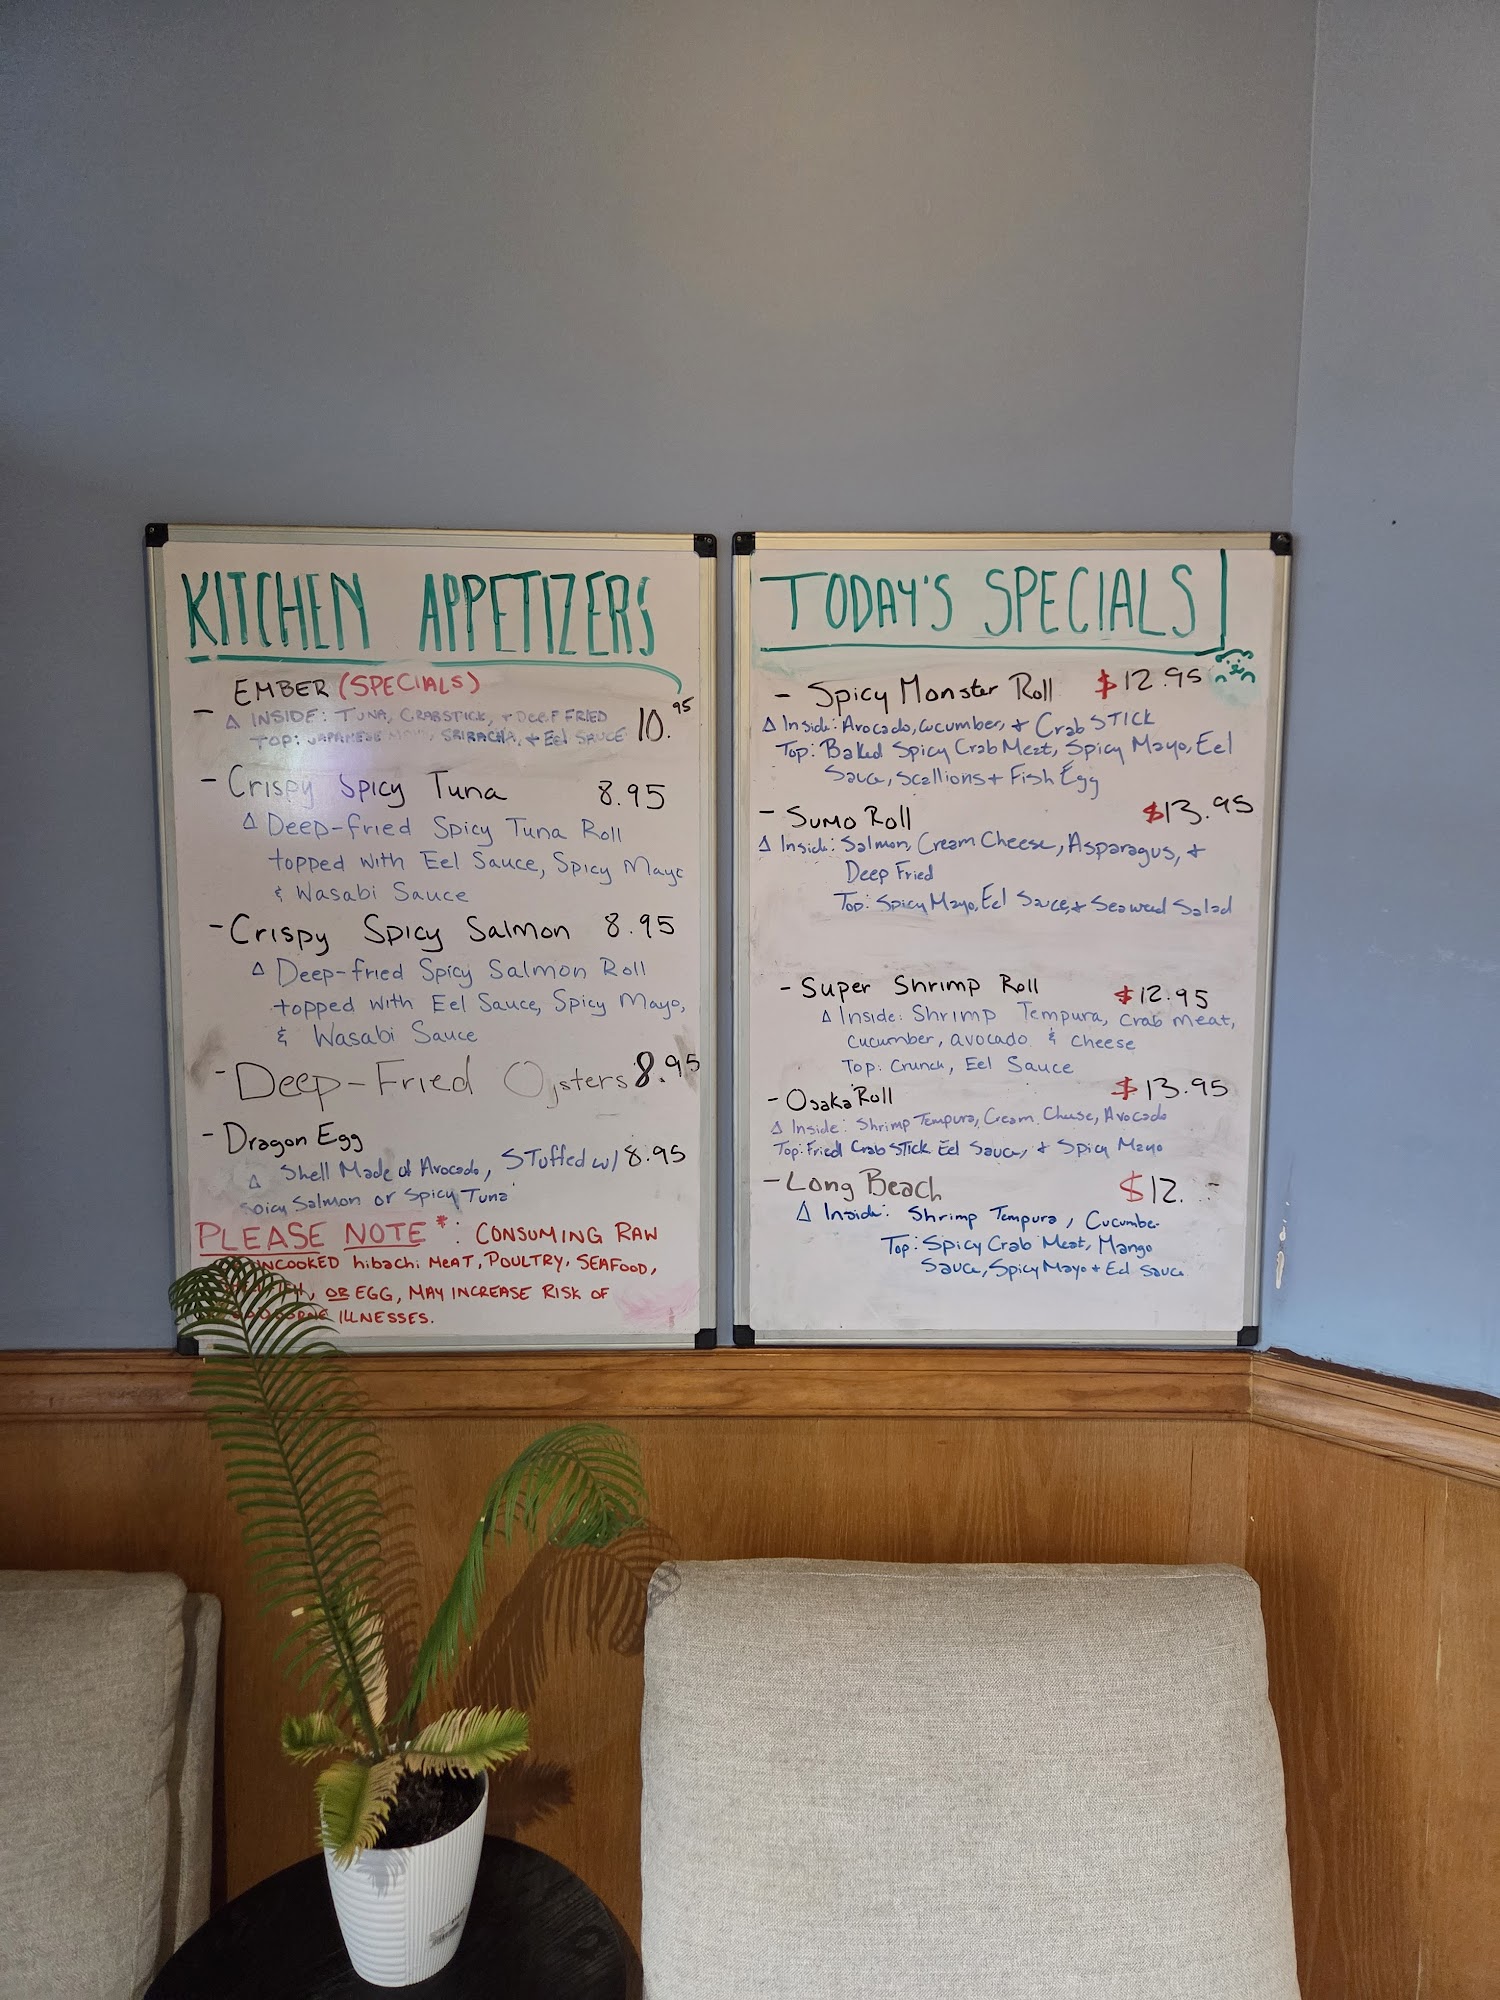 KITCHEN APPETIZERS
- EMBER (SPECIALS)
Δ INSIDE: TUNA, CRABSTICK, + DEEP FRIED 10.95
TOP: JAPANESE MAYO, SRIRACHA, + Eel SAUCE
- Crispy Spicy Tuna 8.95
Δ Deep-fried Spicy Tuna Roll
topped with Eel Sauce, Spicy Mayo
& Wasabi Sauce
- Crispy Spicy Salmon 8.95
Δ Deep-fried Spicy Salmon Roll
topped with Eel Sauce, Spicy Mayo,
& Wasabi Sauce
- Deep-Fried Oysters 8.95
- Dragon Egg
Δ Shell Made of Avocado, STuffed w/ 8.95
Spicy Salmon or Spicy Tuna
PLEASE NOTE*: CONSUMING RAW
UNCOOKED hibachi MEAT, POULTRY, SEAFOOD,
OR EGG, MAY INCREASE RISK OF
ILLNESSES.
TODAY'S SPECIALS!
- Spicy Monster Roll $12.95
Δ Inside: Avocado, Cucumber, + Crab STICK
Top: Baked Spicy Crab Meat, Spicy Mayo, Eel
Sauce, Scallions + Fish Egg
- Sumo Roll $13.95
Δ Inside: Salmon, Cream Cheese, Asparagus, +
Deep Fried
Top: Spicy Mayo, Eel Sauce, + Seaweed Salad
- Super Shrimp Roll $12.95
Δ Inside: Shrimp Tempura, Crab meat,
cucumber, avocado & cheese
Top: Crunch, Eel Sauce
- Osaka Roll $13.95
Δ Inside: Shrimp Tempura, Cream Cheese, Avocado
Top: Fried Crab STICK Eel Sauce, + Spicy Mayo
- Long Beach $12.
Δ Inside: Shrimp Tempura, Cucumber
Top: Spicy Crab Meat, Mango
Sauce, Spicy Mayo + Eel Sauce